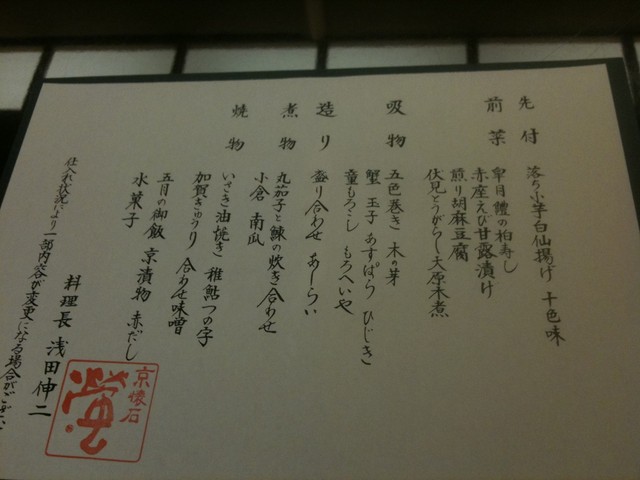 先付
落り小芋白仙揚げ 十色味
前菜
皐月鱧の柏寿し
赤座えび甘露漬け
煎り胡麻豆腐
伏見とうがらし大原木煮
吸物
五色巻き 木の芽
蟹 玉子 あすぱら ひじき
童もろこし もろへいや
造り
盛り合わせ あしらい
煮物
丸茄子と鰊の炊き合わせ
小倉 南瓜
焼物
いさき油焼き 稚鮎つの字
加賀きゅうり 合わせ味噌
五目の御飯 京漬物 赤だし
水菓子
料理長 浅田伸二
仕入れ状況により一部内容が変更になる場合がござい
京懐石